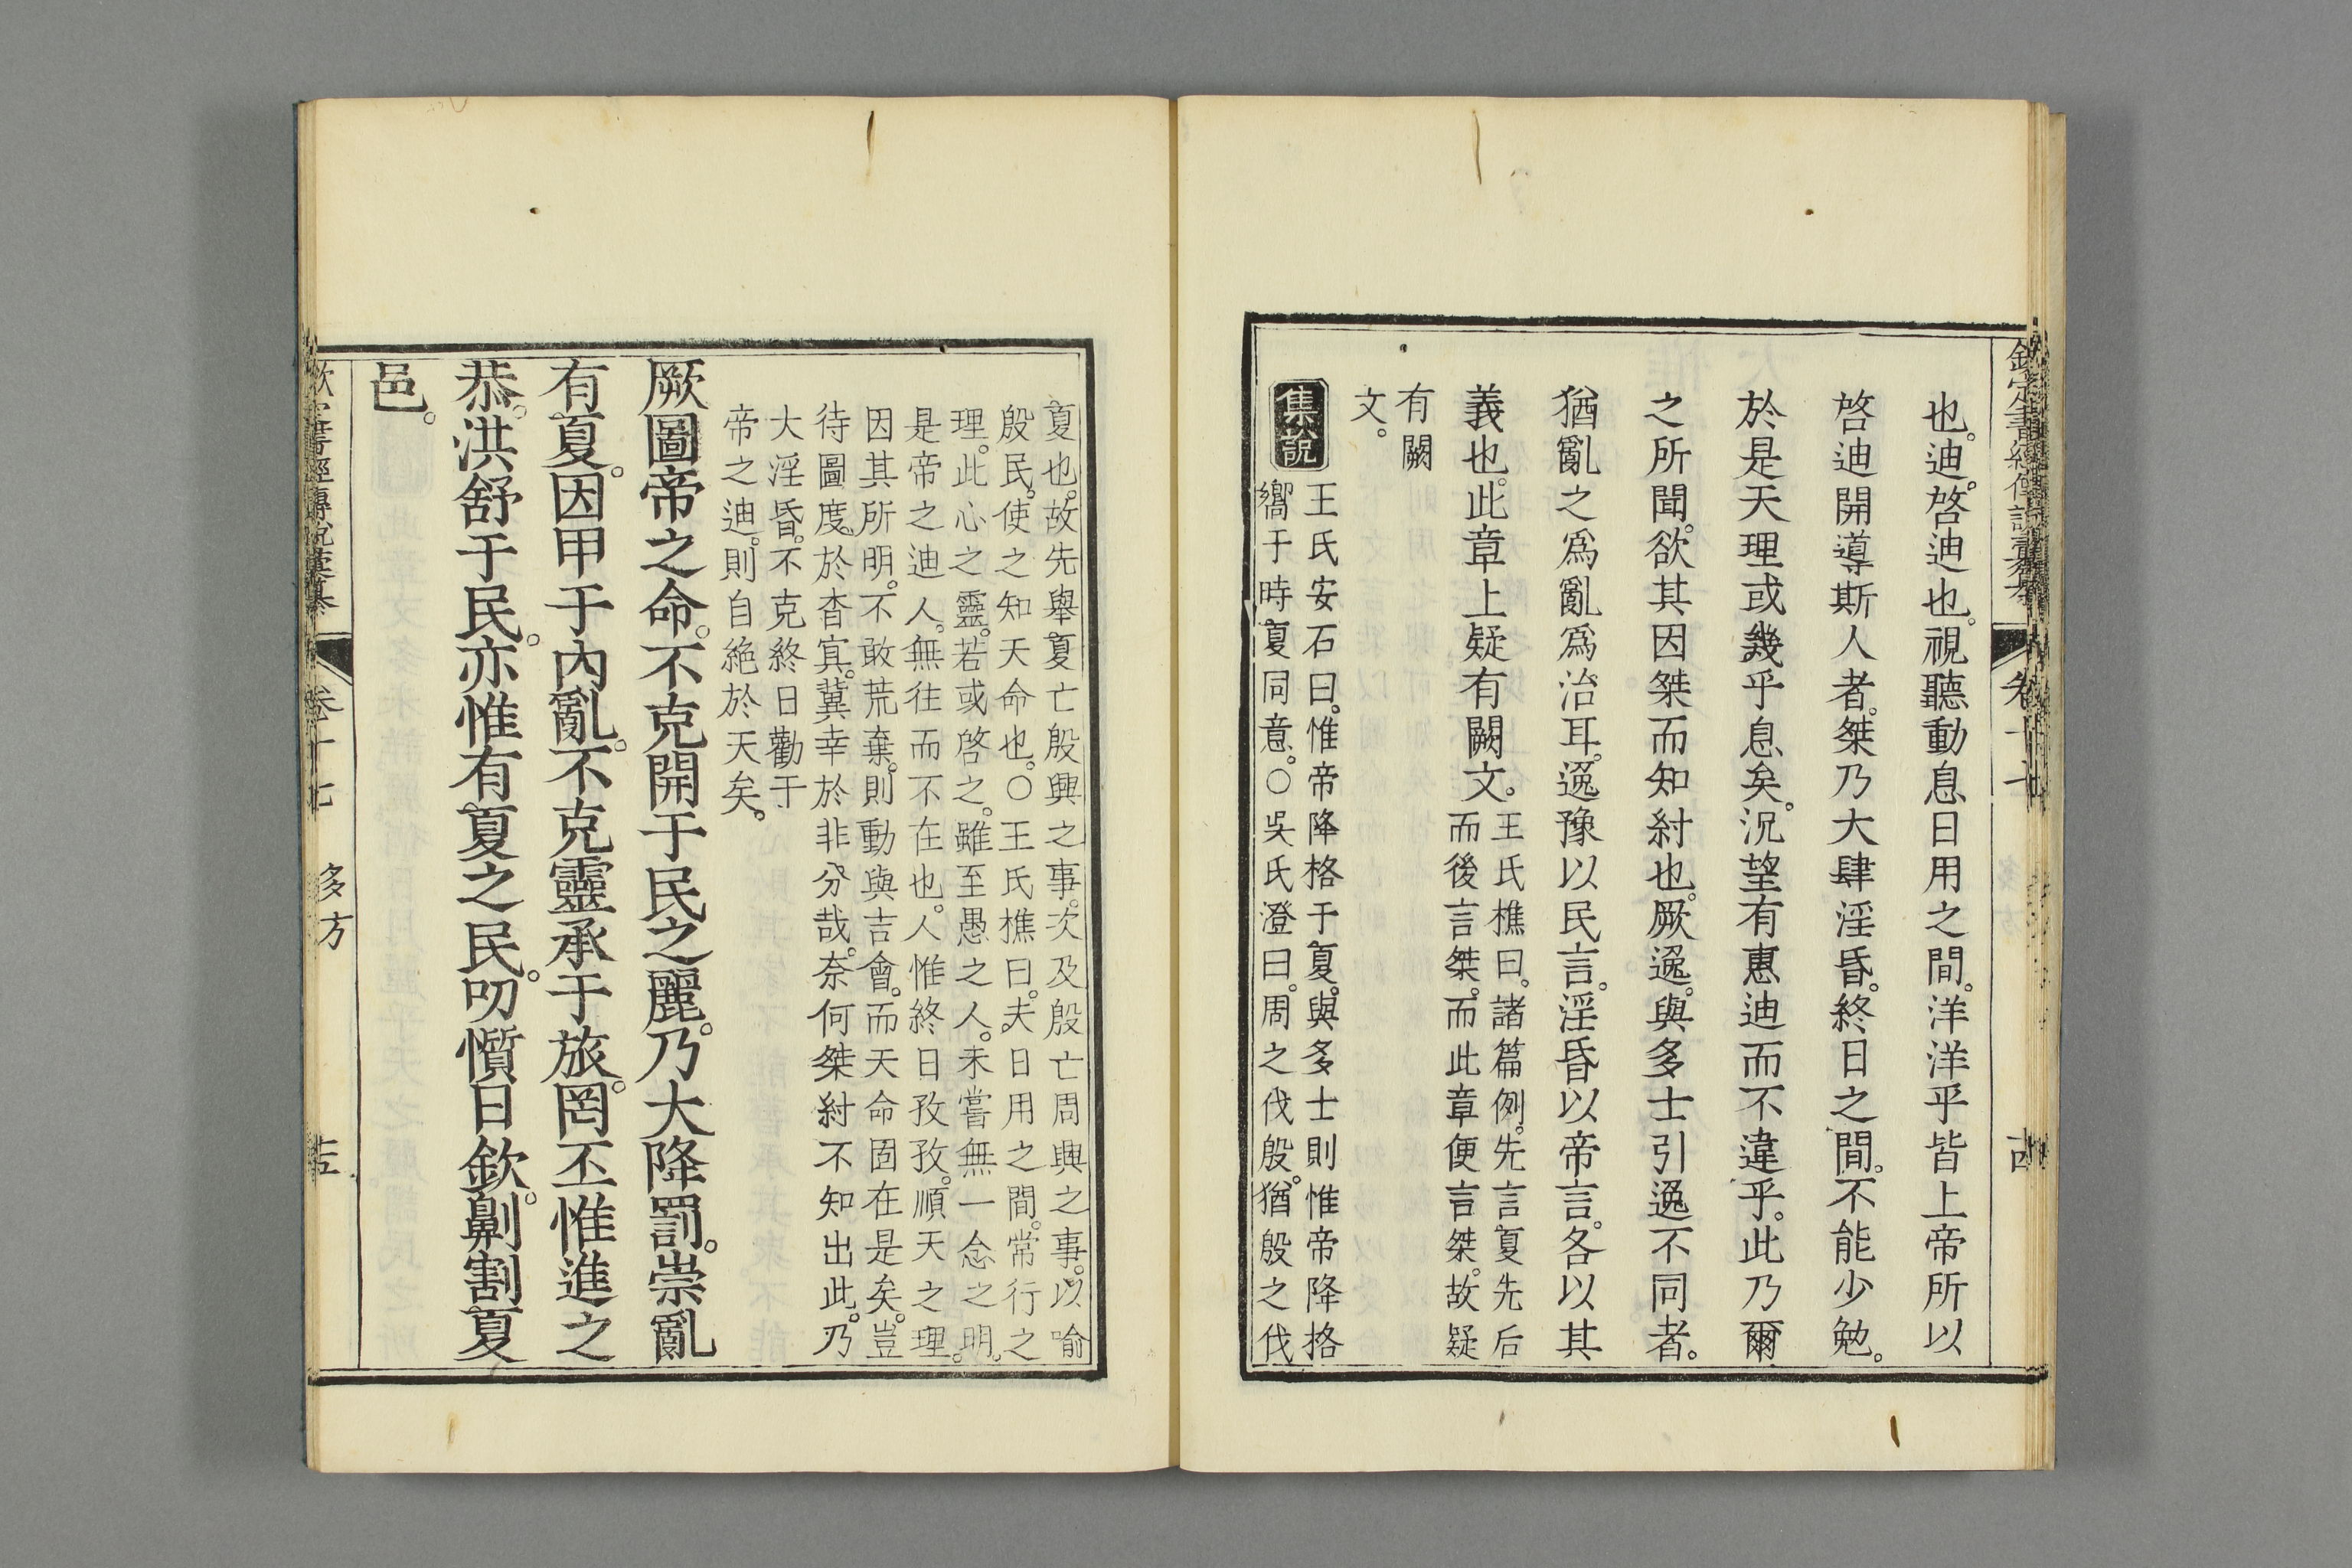 欽定書經傳說彙纂 卷十七 十四
也。迪。啓迪也。視聽動息日用之間。洋洋乎皆上帝所以
啓迪開導斯人者。桀乃大肆淫昏。終日之間。不能少勉。
於是天理或幾乎息矣。況望有惠迪而不違乎。此乃爾
之所聞。欲其因桀而知紂也。厥逸。與多士引逸不同者。
猶亂之爲亂爲治耳。逸豫以民言。淫昏以帝言。各以其
義也。此章上疑有闕文。
王氏樵曰。諸篇例。先言夏先后
而後言桀。而此章便言桀。故疑
有闕
文。
集說
王氏安石曰。惟帝降格于夏。與多士則惟帝降格
嚮于時夏同意。○吳氏澄曰。周之伐殷。猶殷之伐
夏也。故先舉夏亡殷興之事。次及殷亡周興之事。以喻
殷民。使之知天命也。○王氏樵曰。夫日用之間。常行之
理。此心之靈。若或啓之。雖至愚之人。未嘗無一念之明。
是帝之迪人。無往而不在也。人惟終日孜孜。順天之理。
因其所明。不敢荒棄。則動與吉會。而天命固在是矣。豈
待圖度。於杳冥。冀幸於非分哉。奈何桀紂不知出此。乃
大淫昏。不克終日勸于
帝之迪。則自絶於天矣。
厥圖帝之命。不克開于民之麗。乃大降罰。崇亂
有夏。因甲于內亂。不克靈承于旅。罔丕惟進之
恭。洪舒于民。亦惟有夏之民。叨懫日欽。劓割夏
邑。
欽定書經傳說彙纂 卷十七 多方 十五